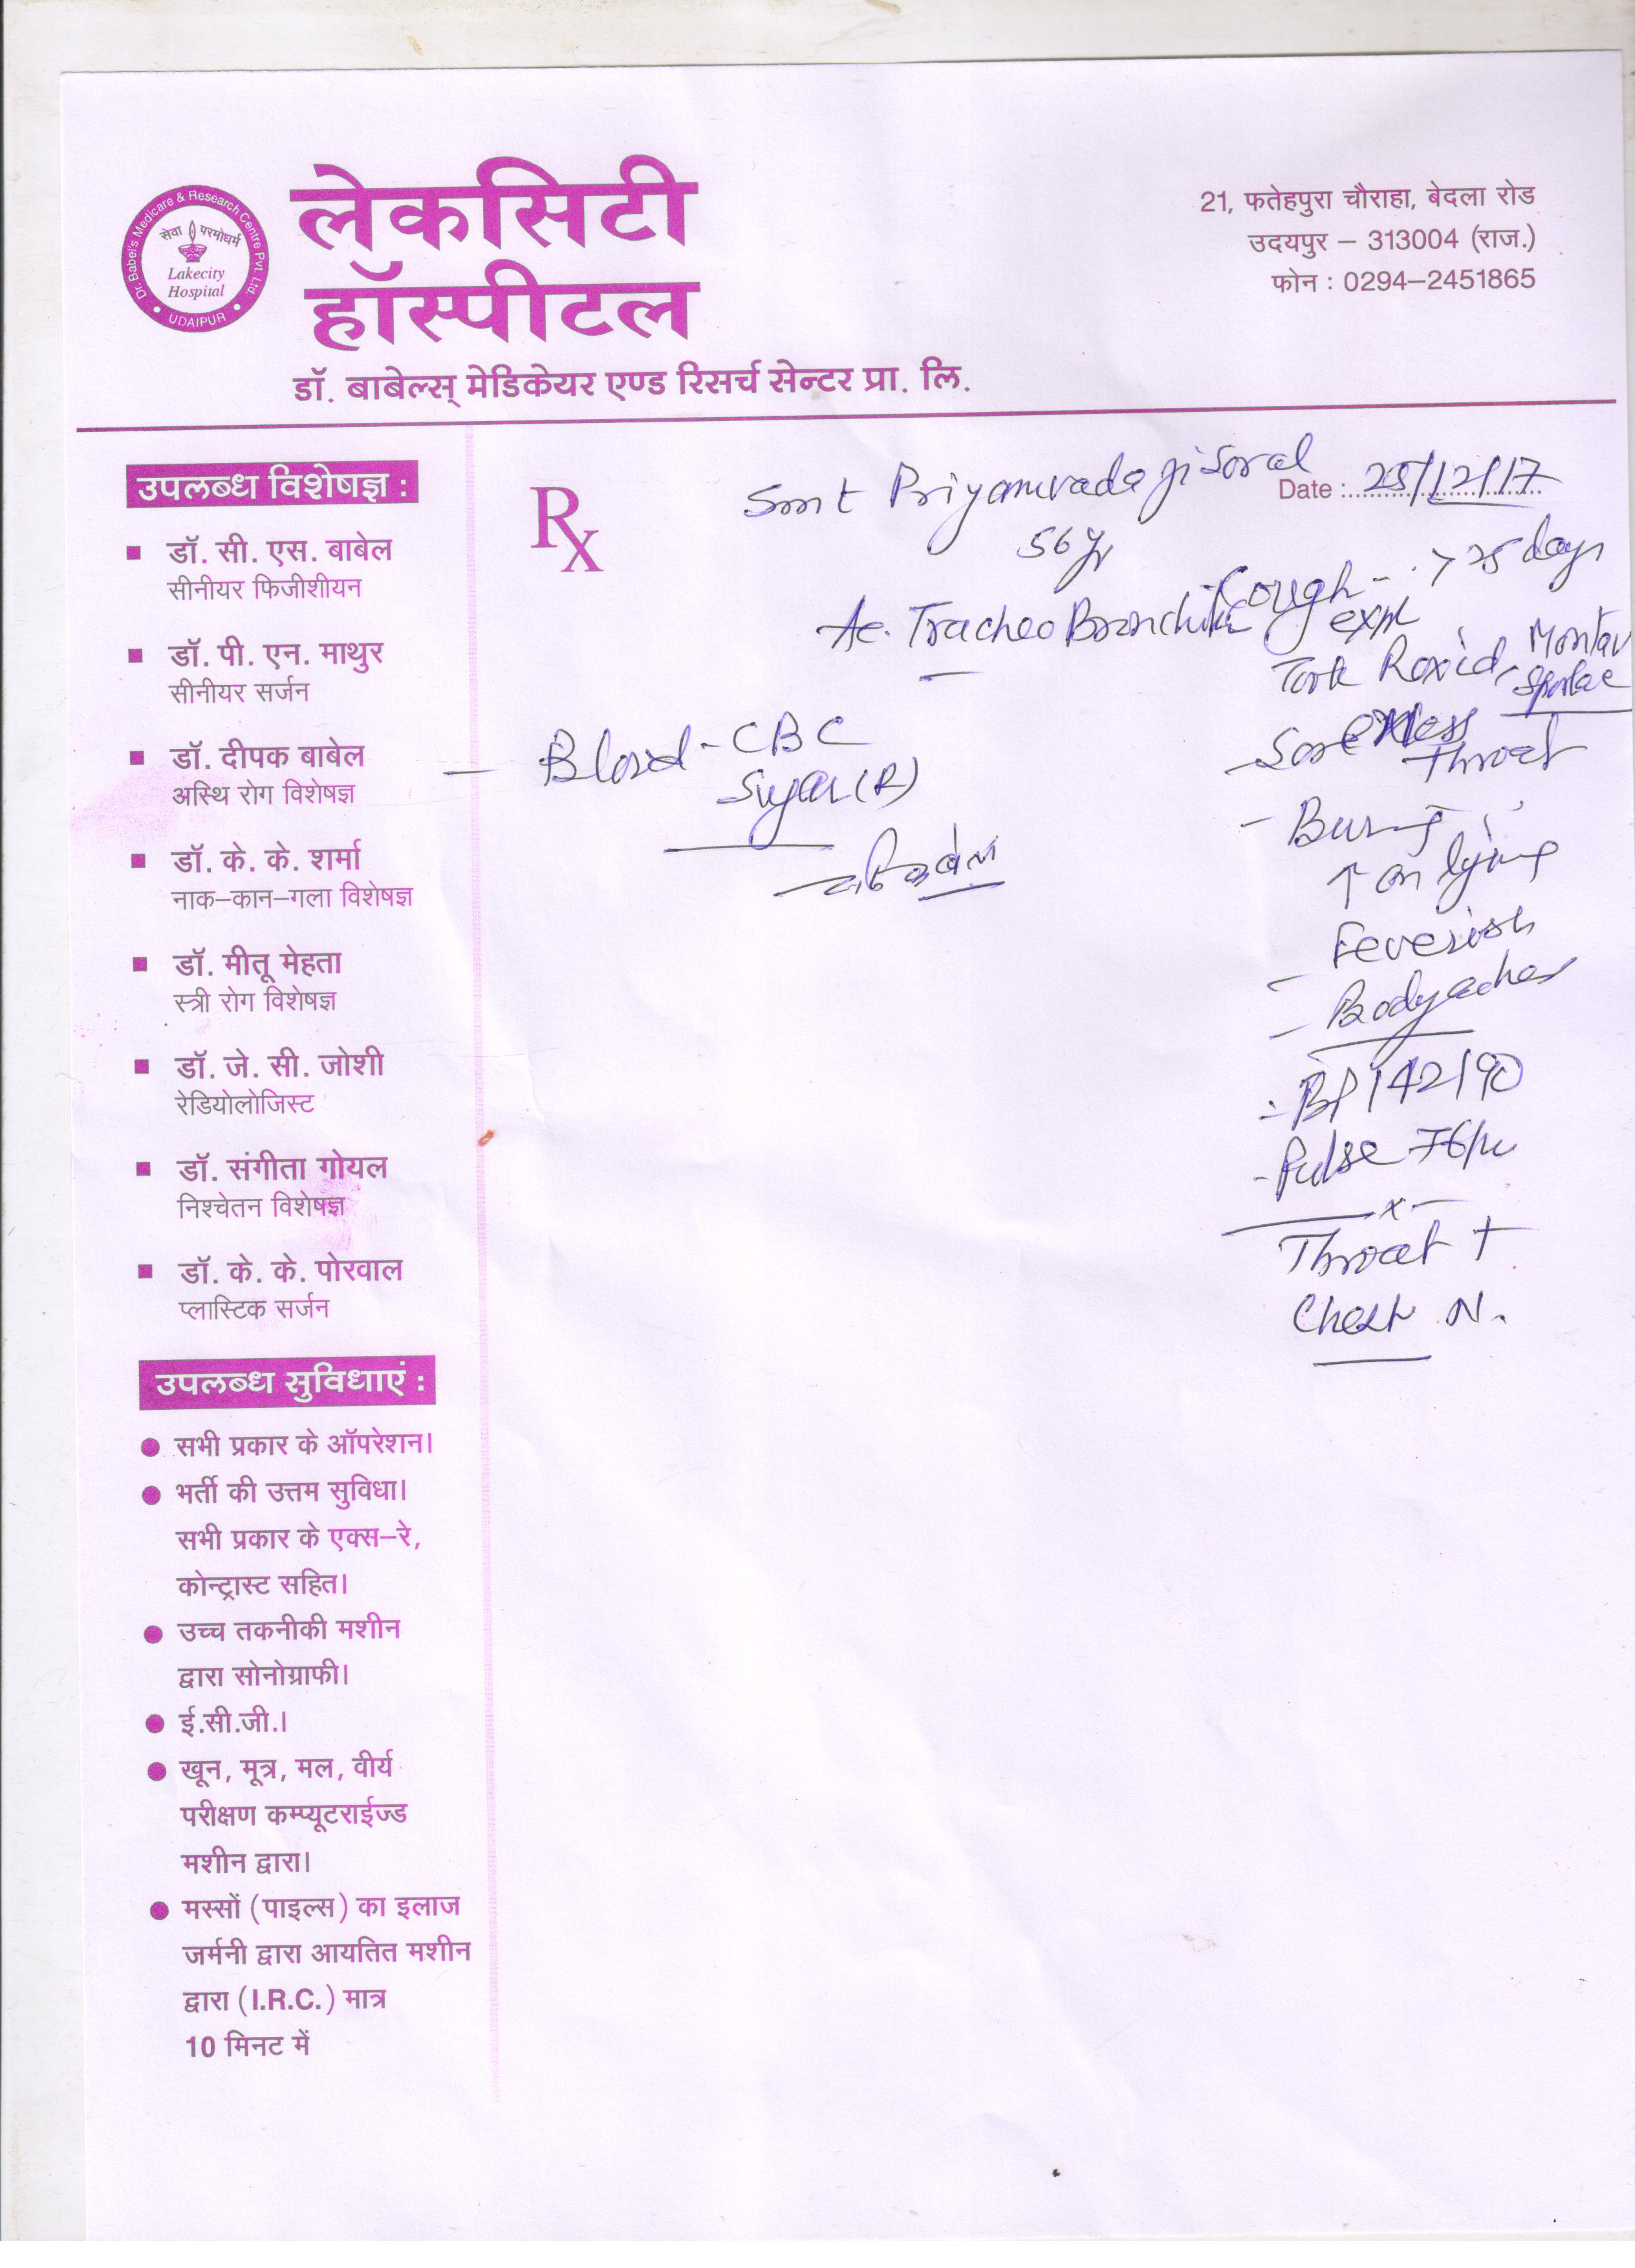 Dr. Babel's Medicare & Research Centre Pvt. Ltd.
सेवा परमोधर्म
Lakecity
Hospital
UDAIPUR
लेकसिटी
हॉस्पीटल
डॉ. बाबेल्स् मेडिकेयर एण्ड रिसर्च सेन्टर प्रा. लि.
21, फतेहपुरा चौराहा, बेदला रोड
उदयपुर – 313004 (राज.)
फोन : 0294–2451865
उपलब्ध विशेषज्ञ :
डॉ. सी. एस. बाबेल
सीनीयर फिजीशीयन
डॉ. पी. एन. माथुर
सीनीयर सर्जन
डॉ. दीपक बाबेल
अस्थि रोग विशेषज्ञ
डॉ. के. के. शर्मा
नाक–कान–गला विशेषज्ञ
डॉ. मीतू मेहता
स्त्री रोग विशेषज्ञ
डॉ. जे. सी. जोशी
रेडियोलोजिस्ट
डॉ. संगीता गोयल
निश्चेतन विशेषज्ञ
डॉ. के. के. पोरवाल
प्लास्टिक सर्जन
उपलब्ध सुविधाएं :
सभी प्रकार के ऑपरेशन।
भर्ती की उत्तम सुविधा।
सभी प्रकार के एक्स–रे,
कोन्ट्रास्ट सहित।
उच्च तकनीकी मशीन
द्वारा सोनोग्राफी।
ई.सी.जी.।
खून, मूत्र, मल, वीर्य
परीक्षण कम्प्यूटराईज्ड
मशीन द्वारा।
मस्सों (पाइल्स) का इलाज
जर्मनी द्वारा आयतित मशीन
द्वारा (I.R.C.) मात्र
10 मिनट में
Rx
Smt Priyamvada ji Soral
Date : 25/12/17
56 yr
Cough - > 25 days
Ac. Tracheo Bronchitis
exp
Took Roxid, Montav
Sore Throat
- Blood - CBC
Sugar (R)
- Burning
↑ on lying
- Feverish
- Bodyaches
- BP 142/90
- Pulse 76/m
x
Throat +
Chest N.